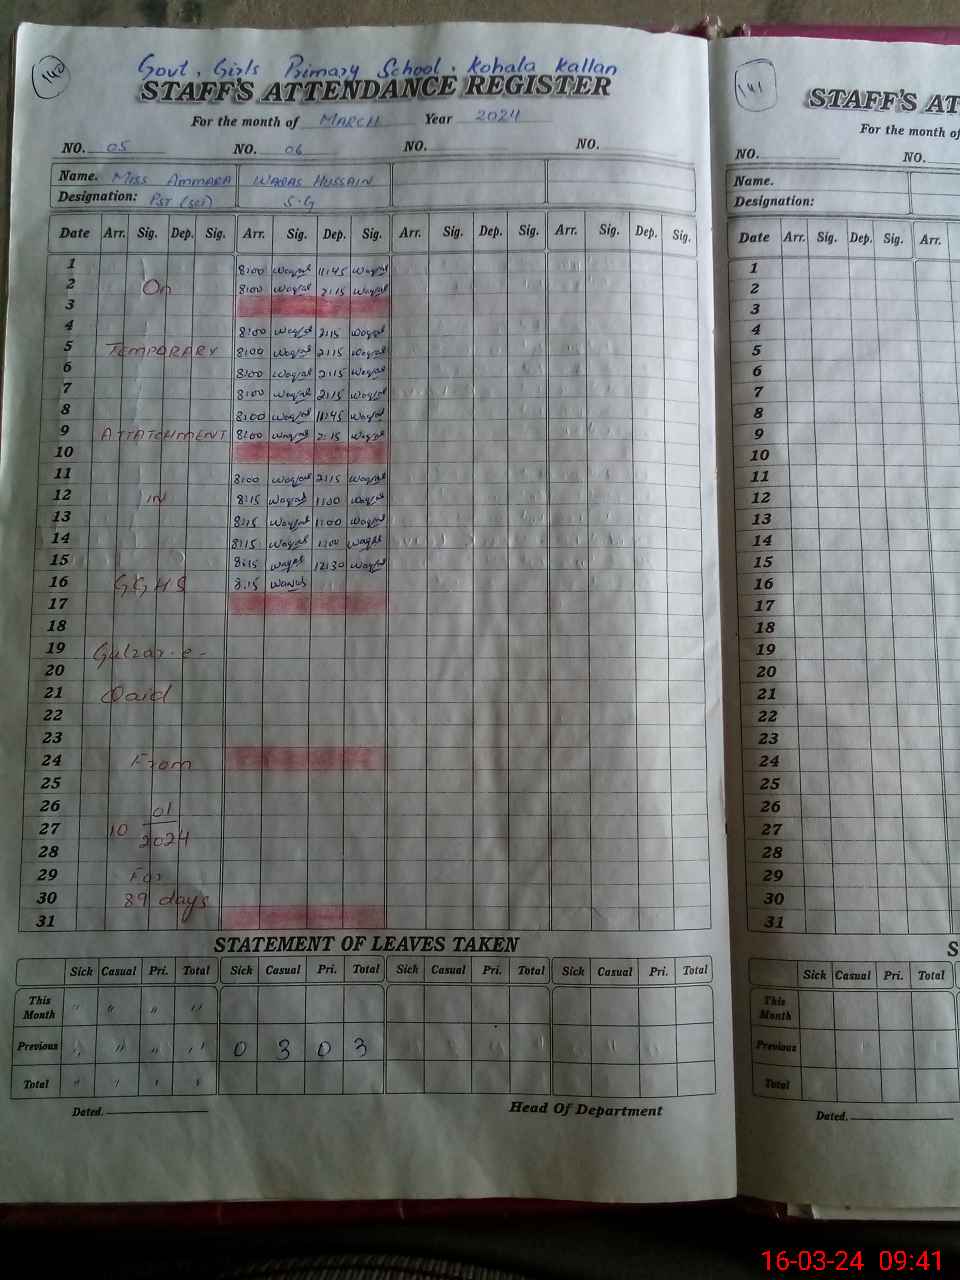 140
Govt. Girls Primary School. Kohala Kallan
STAFF'S ATTENDANCE REGISTER
For the month of MARCH Year 2024
NO. 05 NO. 06 NO. NO.
Name. Miss Ammara WAQAS HUSSAIN
Designation: PST (sci) S.G
Date Arr. Sig. Dep. Sig. Arr. Sig. Dep. Sig. Arr. Sig. Dep. Sig. Arr. Sig. Dep. Sig.
1 8:00 Waqas 11:45 Waqas
2 On 8:00 Waqas 2:15 Waqas
3
4 8:00 Waqas 2:15 Waqas
5 TEMPORARY 8:00 Waqas 2:15 Waqas
6 8:00 Waqas 2:15 Waqas
7 8:00 Waqas 2:15 Waqas
8 8:00 Waqas 11:45 Waqas
9 ATTATCHMENT 8:00 Waqas 2:15 Waqas
10
11 8:00 Waqas 2:15 Waqas
12 IN 8:15 Waqas 1:00 Waqas
13 8:15 Waqas 1:00 Waqas
14 8:15 Waqas 1:00 Waqas
15 8:15 Waqas 12:30 Waqas
16 GGHS 8:15 Waqas
17
18
19 Gulzar-e-
20
21 Qaid
22
23
24 From
25
26 01
27 10 2024
28
29 For
30 89 days
31
STATEMENT OF LEAVES TAKEN
Sick Casual Pri. Total Sick Casual Pri. Total Sick Casual Pri. Total Sick Casual Pri. Total
This Month " " " "
Previous " " " " 0 3 0 3
Total " " " "
Dated. Head Of Department
141
STAFF'S AT
For the month of
NO. NO.
Name.
Designation:
Date Arr. Sig. Dep. Sig. Arr.
1
2
3
4
5
6
7
8
9
10
11
12
13
14
15
16
17
18
19
20
21
22
23
24
25
26
27
28
29
30
31
S
Sick Casual Pri. Total
This Month
Previous
Total
Dated.
16-03-24 09:41